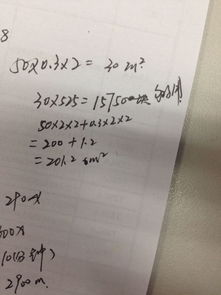 8
50×0.3×2= 30 m²
30×525=15750块
50×2×2+0.3×2×2
=200+1.2
=201.2 m²
290
00x
2900m.